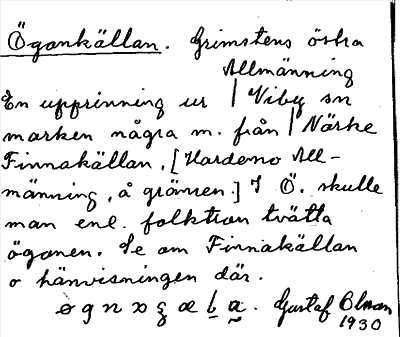 Ögonkällan. Grimstens östra
Allmänning
En upprinning ur | Viby sn
marken några m. från | Närke
Finnakällan, [Hardemo All-
männing, å gränsen.] I Ö. skulle
man enl. folktron tvätta
ögonen. Se om Finnakällan
o hänvisningen där.
Gustaf Olman
1930